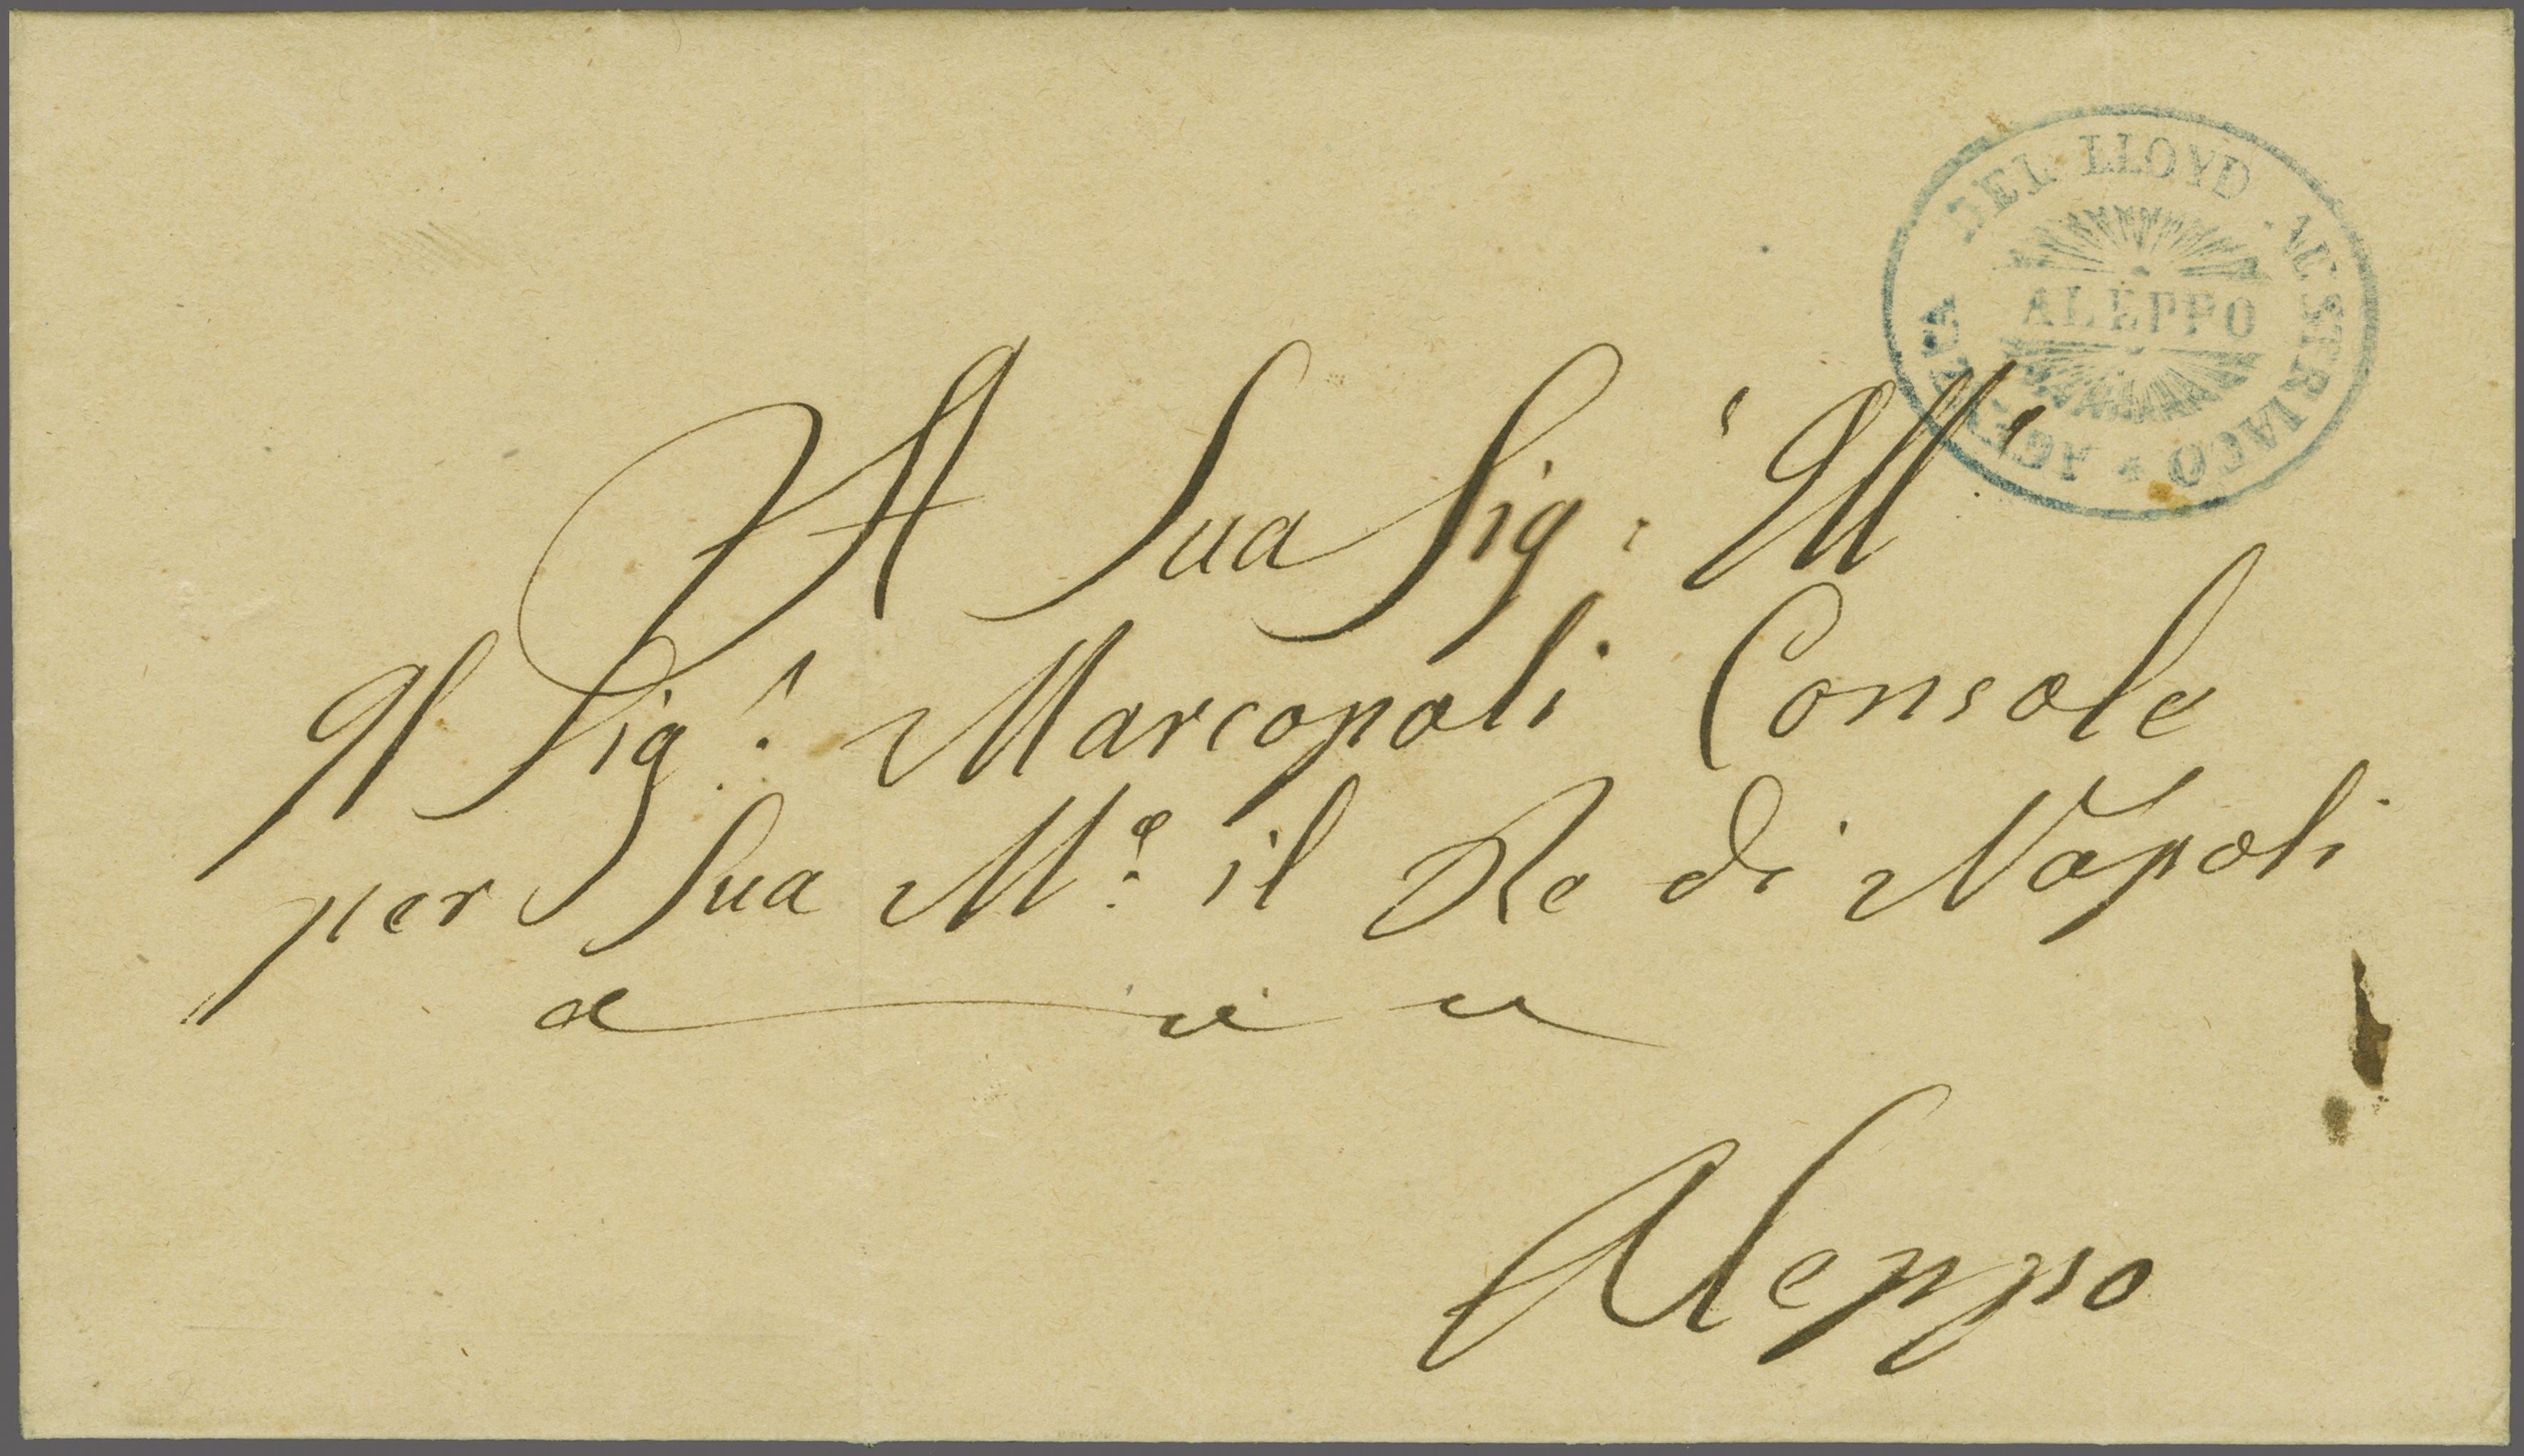 AGENZIA DEL LLOYD AUSTRIACO *
ALEPPO
A Sua Sig:
Il Sig.r Marcopoli Console
per Sua M.e il Re di Napoli
a
Aleppo